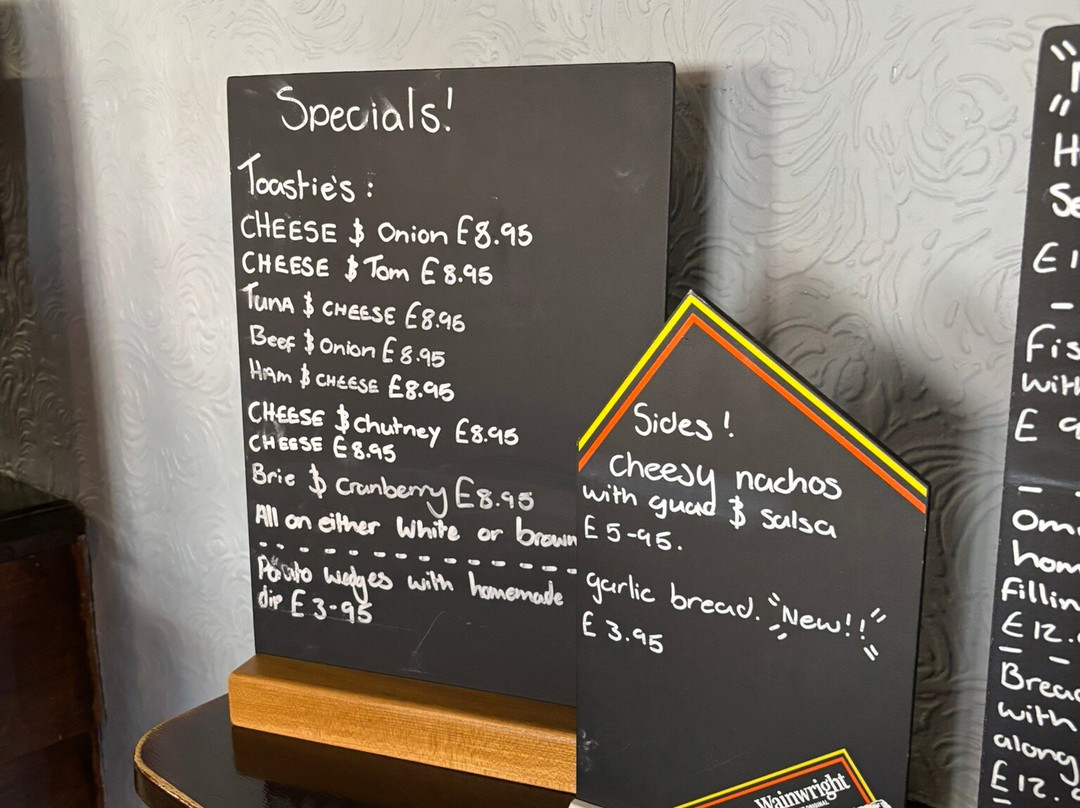 Specials!
Toastie's :
CHEESE $ Onion £8.95
CHEESE $ Tom £8.95
Tuna $ CHEESE £8.95
Beef $ Onion £8.95
Ham $ CHEESE £8.95
CHEESE $ chutney £8.95
CHEESE £8.95
Brie $ Cranberry £8.95
All on either White or brown
Potato wedges with homemade
dip £3-95
Sides!
Cheesy nachos
with guad $ Salsa
£5-95.
garlic bread. "New!!"
£3.95
Wainwright
"
"
H
Se
£1
Fis
with
£ 9
Om
hom
Fillin
£12.
Bread
with
along
£12.